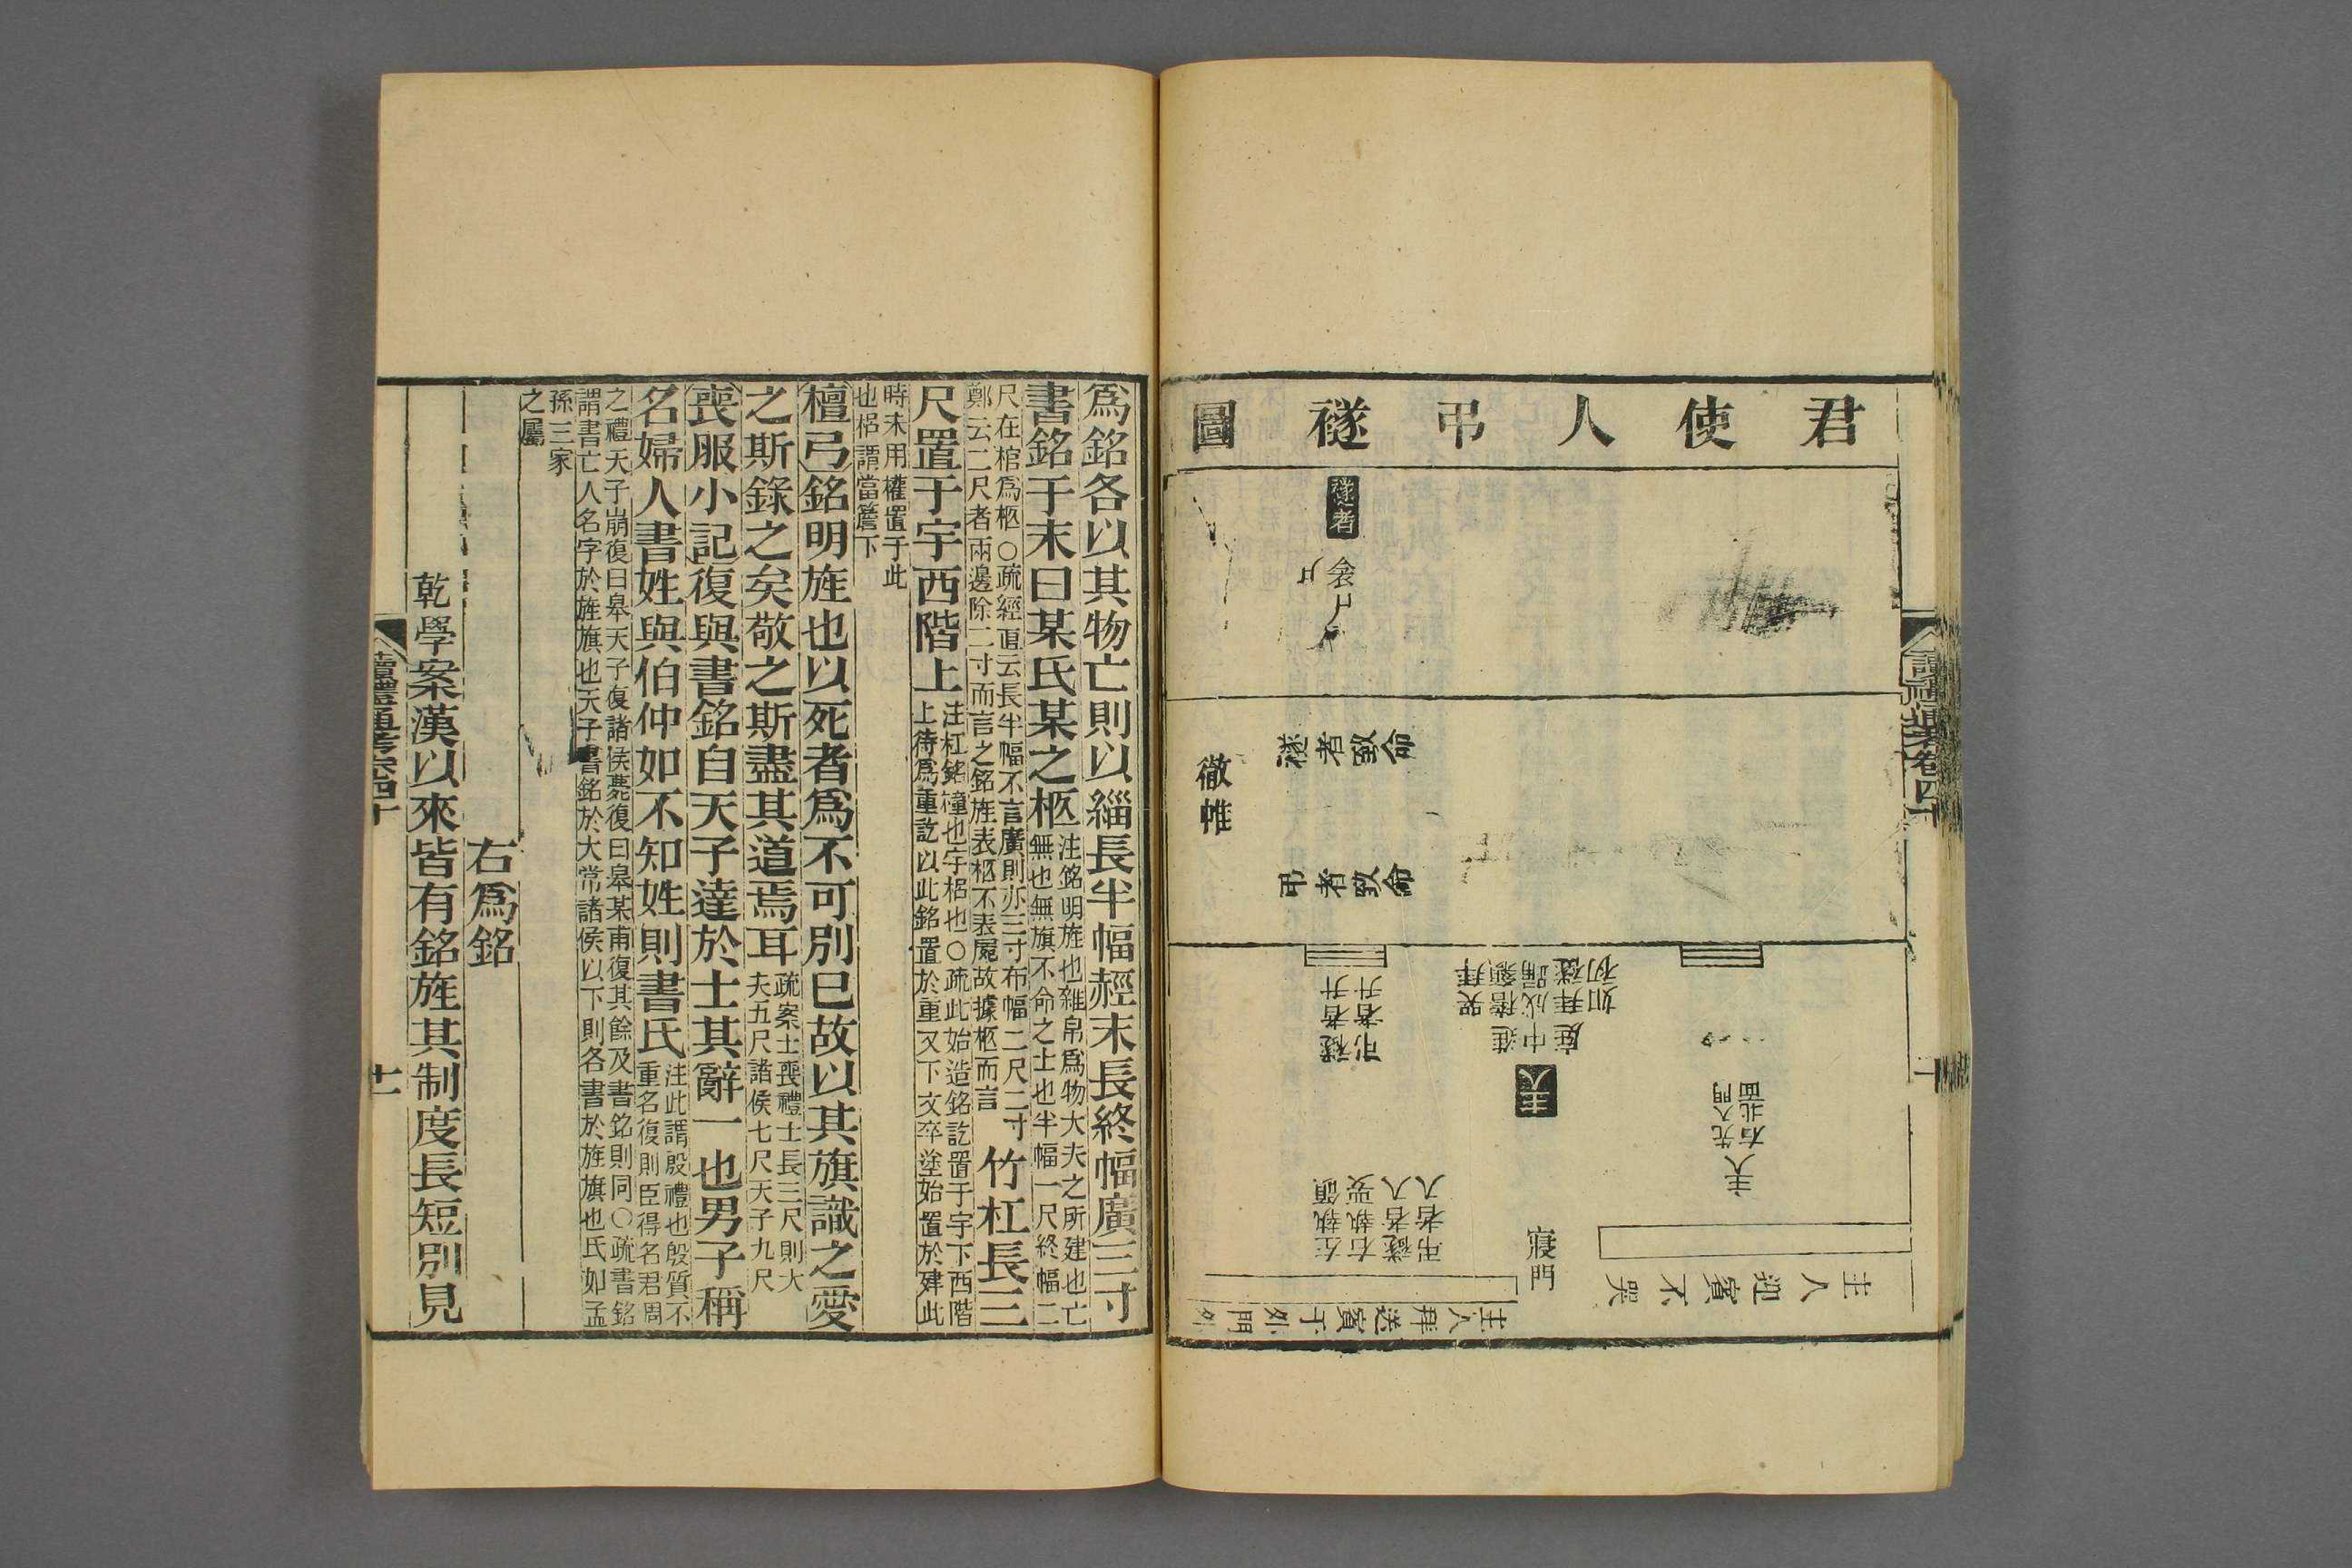 君使人弔襚圖
襚者
襚者致命
弔者致命
徹帷
襚者升
弔者升
主人
寢門
主人迎賓不哭
主人拜送賓于外門外
讀禮通考卷四十
爲銘各以其物亡則以緇長半幅經末長終幅廣三寸
書銘于末曰某氏某之柩
注銘明旌也雜帛爲物大夫之所建也亡
無也無旗不命之士也半幅一尺終幅二
尺在棺爲柩○疏經直云長半幅不言廣則亦三寸布幅二尺二寸
鄭云二尺者兩邊除二寸而言之銘旌表柩不表屍故據柩而言
竹杠長三
尺置于宇西階上
注杠銘橦也宇梠也○疏此始造銘訖置于宇下西階
上待爲重訖以此銘置於重又下文卒塗始置於肂此
時未用權置于此
也梠謂當簷下
檀弓銘明旌也以死者爲不可別已故以其旗識之愛
之斯錄之矣敬之斯盡其道焉耳
疏案士喪禮士長三尺則大
夫五尺諸侯七尺天子九尺
喪服小記復與書銘自天子達於士其辭一也男子稱
名婦人書姓與伯仲如不知姓則書氏
注此謂殷禮也殷質不
重名復則臣得名君周
之禮天子崩復曰皋天子復諸侯薨復曰皋某甫復其餘及書銘則同○疏書銘
謂書亡人名字於旌旗也天子書銘於大常諸侯以下則各書於旌旗也氏如孟
孫三家
之屬
右爲銘
乾學案漢以來皆有銘旌其制度長短別見
讀禮通考卷四十
十一